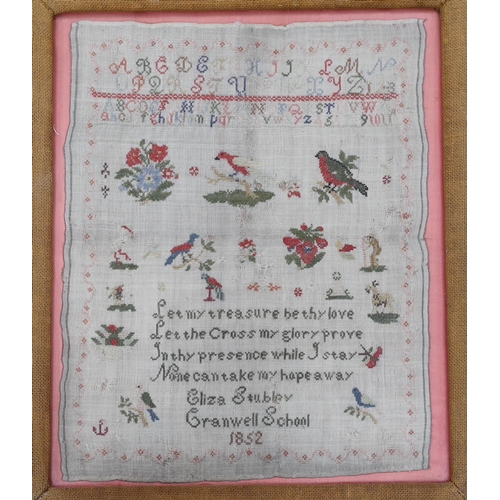 A B C D E H I J L M N
P Q R S T U X Y Z
A B C D F H K N P Q S T V W
a b c d f g h j k l o m p q r v w y z s 9 10 11
Let my treasure be thy love
Let the Cross my glory prove
In thy presence while I stay
None can take my hope away
Eliza Stubley
Cranwell School
1852